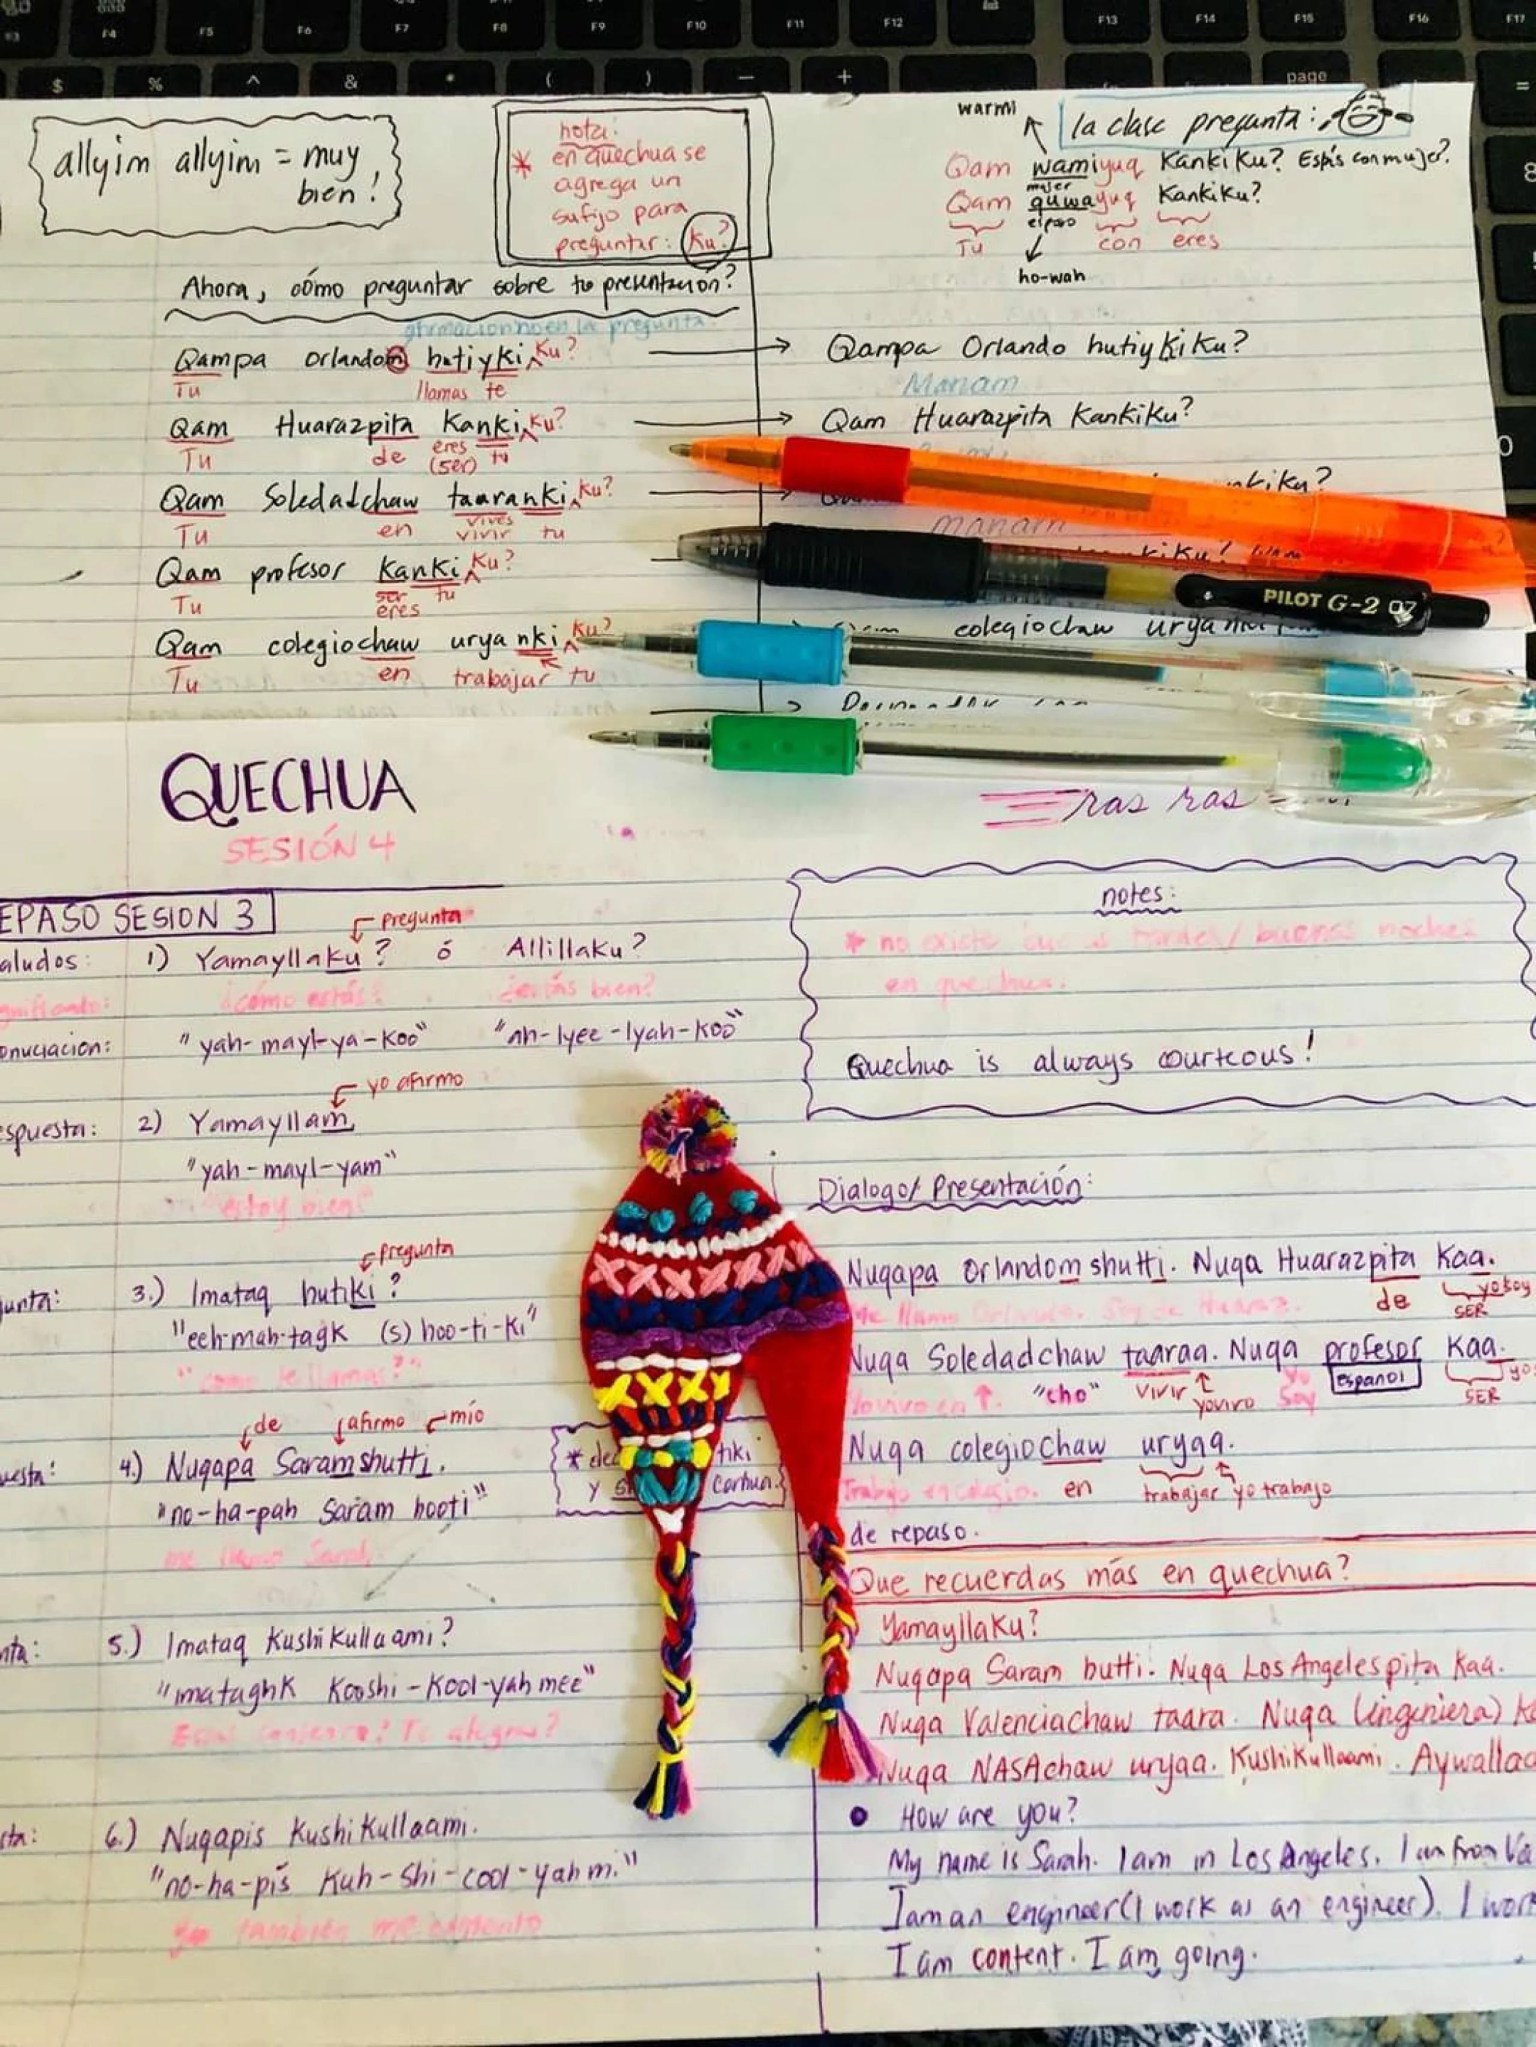 F4 F5 F6 F7 F8 F9 F10 F11 F12 F13 F14 F15 F16 F17
$ % ^ & * ( ) — + page =
allyim allyim = muy
bien!
nota:
* en quechua se
agrega un
sufijo para
preguntar: Ku?
warmi
la clase pregunta:
Qam wamiyuq KanKiKu? Estás con mujer?
mujer
Qam quwayuq KanKiKu?
esposo
Tu con eres
ho-wah
Ahora, cómo preguntar sobre tu presentación?
afirmacion no en la pregunta.
Qampa Orlandom hutiyki Ku?
Tu llamas te
Qampa Orlando hutiyKiKu?
Manam
Qam Huarazpita Kanki Ku?
Tu de eres tu
(ser)
Qam Huarazpita KanKiKu?
Qam Soledadchaw taaranki Ku?
Tu en vives
vivir tu
nkiku?
Manam
Qam profesor Kanki Ku?
Tu ser tu
eres
kiku?
Qam colegiochaw uryanki Ku?
Tu en trabajar tu
colegiochaw
PILOT G-2 07
QUECHUA
SESIÓN 4
ras ras
EPASO SESION 3
pregunta
aludos: 1) Yamayllaku? ó Allillaku?
¿cómo estás? ¿estás bien?
"yah-mayl-ya-Koo" "ah-lyee-lyah-Koo"
yo afirmo
spuesta: 2) Yamayllam
"yah-mayl-yam"
estoy bien"
pregunta
unta: 3.) Imataq hutiki?
"eeh-mah-tagk (s) hoo-ti-ki"
"como te llamas?"
de afirmo mío
uesta: 4.) Nuqapa Saramshutti.
"no-ha-pah Saram hooti"
me llamo Sarah.
* tiki
y Carhua.
nta: 5.) Imataq KushiKullaami?
"imataghK Kooshi-Kool-yah mee"
Te alegras?
sta: 6.) Nuqapis KushiKullaami.
"no-ha-pis Kuh-shi-cool-yahmi."
yo también me
notes:
* no existe buenas tardes/buenas noches
en quechua.
Quechua is always courteous!
Dialogo/Presentación:
Nuqapa Orlandom shutti. Nuqa Huarazpita Kaa.
Me llamo Orlando. Soy de Huaraz. de yo soy
SER
Nuqa Soledadchaw taaraa. Nuqa profesor Kaa.
Yo vivo en "cho" vivir yo vivo yo soy espanol SER yo
Nuqa colegiochaw uryaa.
Trabajo en colegio. en trabajar yo trabajo
de repaso.
Que recuerdas más en quechua?
YamayllaKu?
Nuqapa Saram butti. Nuqa Los Angelespita Kaa.
Nuqa Valenciachaw taara. Nuqa (ingeniera) Ka
Nuqa NASAchaw uryaa. KushiKullaami. Aywallaa
• How are you?
My name is Sarah. I am in Los Angeles. I am from Va
I am an engineer (I work as an engineer). I wor
I am content. I am going.